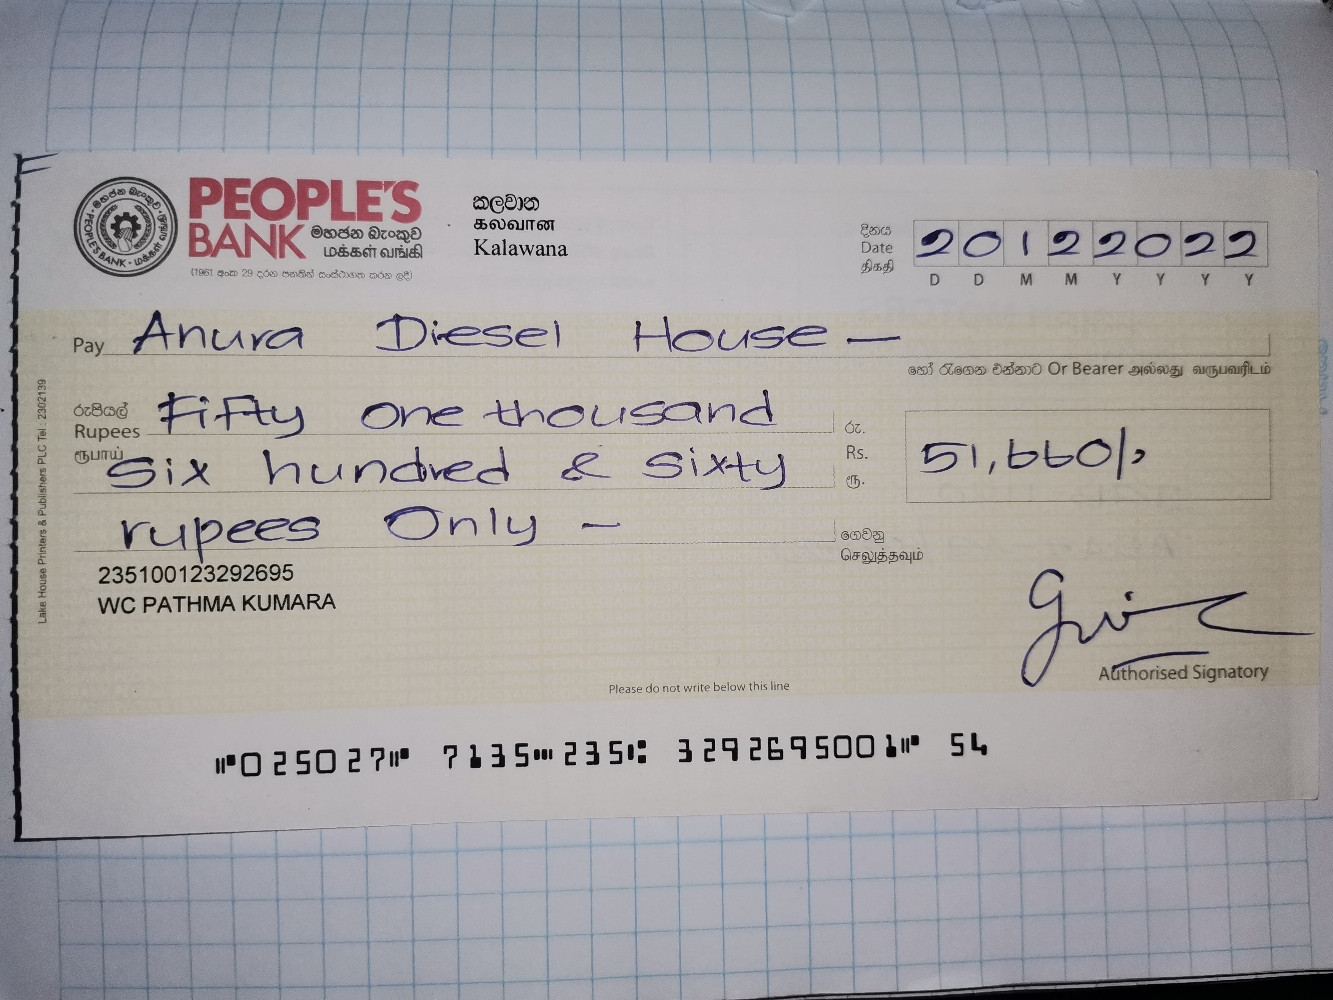 PEOPLE'S
BANK මහජන බැංකුව
மக்கள் வங்கி
(1961 අංක 29 දරන පනතින් සංස්ථාගත කරන ලදී)
මහජන බැංකුව · மக்கள் வங்கி · PEOPLE'S BANK
කලවාන
கலவான
Kalawana
දිනය
Date
திகதி
20122022
D D M M Y Y Y Y
Pay Anura Diesel House —
හෝ රැගෙන එන්නාට Or Bearer அல்லது வருபவரிடம்
රුපියල්
Rupees
ரூபாய்
Fifty one thousand
six hundred & sixty
rupees Only —
රු.
Rs.
ரூ.
51,660/-
ගෙවනු
செலுத்தவும்
235100123292695
WC PATHMA KUMARA
Authorised Signatory
Please do not write below this line
Lake House Printers & Publishers PLC Tel : 2302139
⑈025027⑈ 7135⑉235⑆ 3292695001⑈ 54